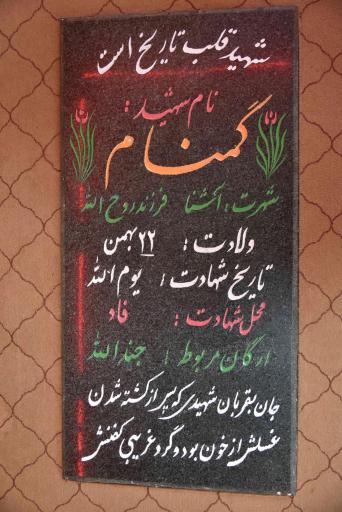 شهید قلب تاریخ است
نام شهید :
گمنام
شهرت : آشنا فرزند روح الله
ولادت : ۲۲ بهمن
تاریخ شهادت : یوم الله
محل شهادت : فاو
ارگان مربوط : جندالله
جان بقربان شهیدی که پس از کشته شدن
غسلش از خون بود و گرد غریبی کفنش